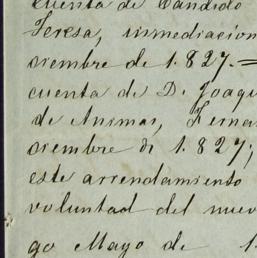 cuenta de Candido
Teresa, inmediacion
siembre de 1.827.=
cuenta de D. Joaqu
de Animas, Ferna
siembre di 1.827;
este arrendamiento
voluntad del nuev
go Mayo de 1.